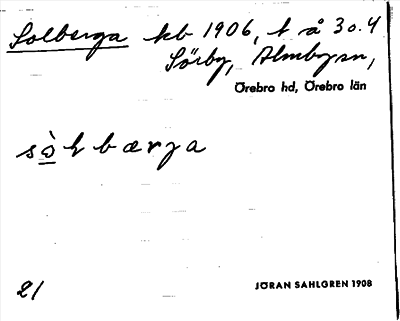 Solberga kb 1906, t å 30.4
Sörby, Almby sn,
Örebro hd, Örebro län
sò̠ɫbærga
21
JÖRAN SAHLGREN 1908